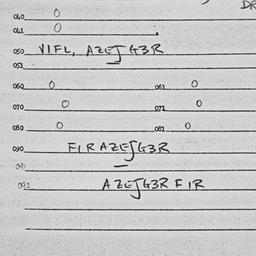 DR
040 0
041 0
050 VIFL, AZEJG3R
051
060 0 061 0
070 0 071 0
080 0 081 0
090 FIRAZEJG3R
091
092 AZEJG3R FIR